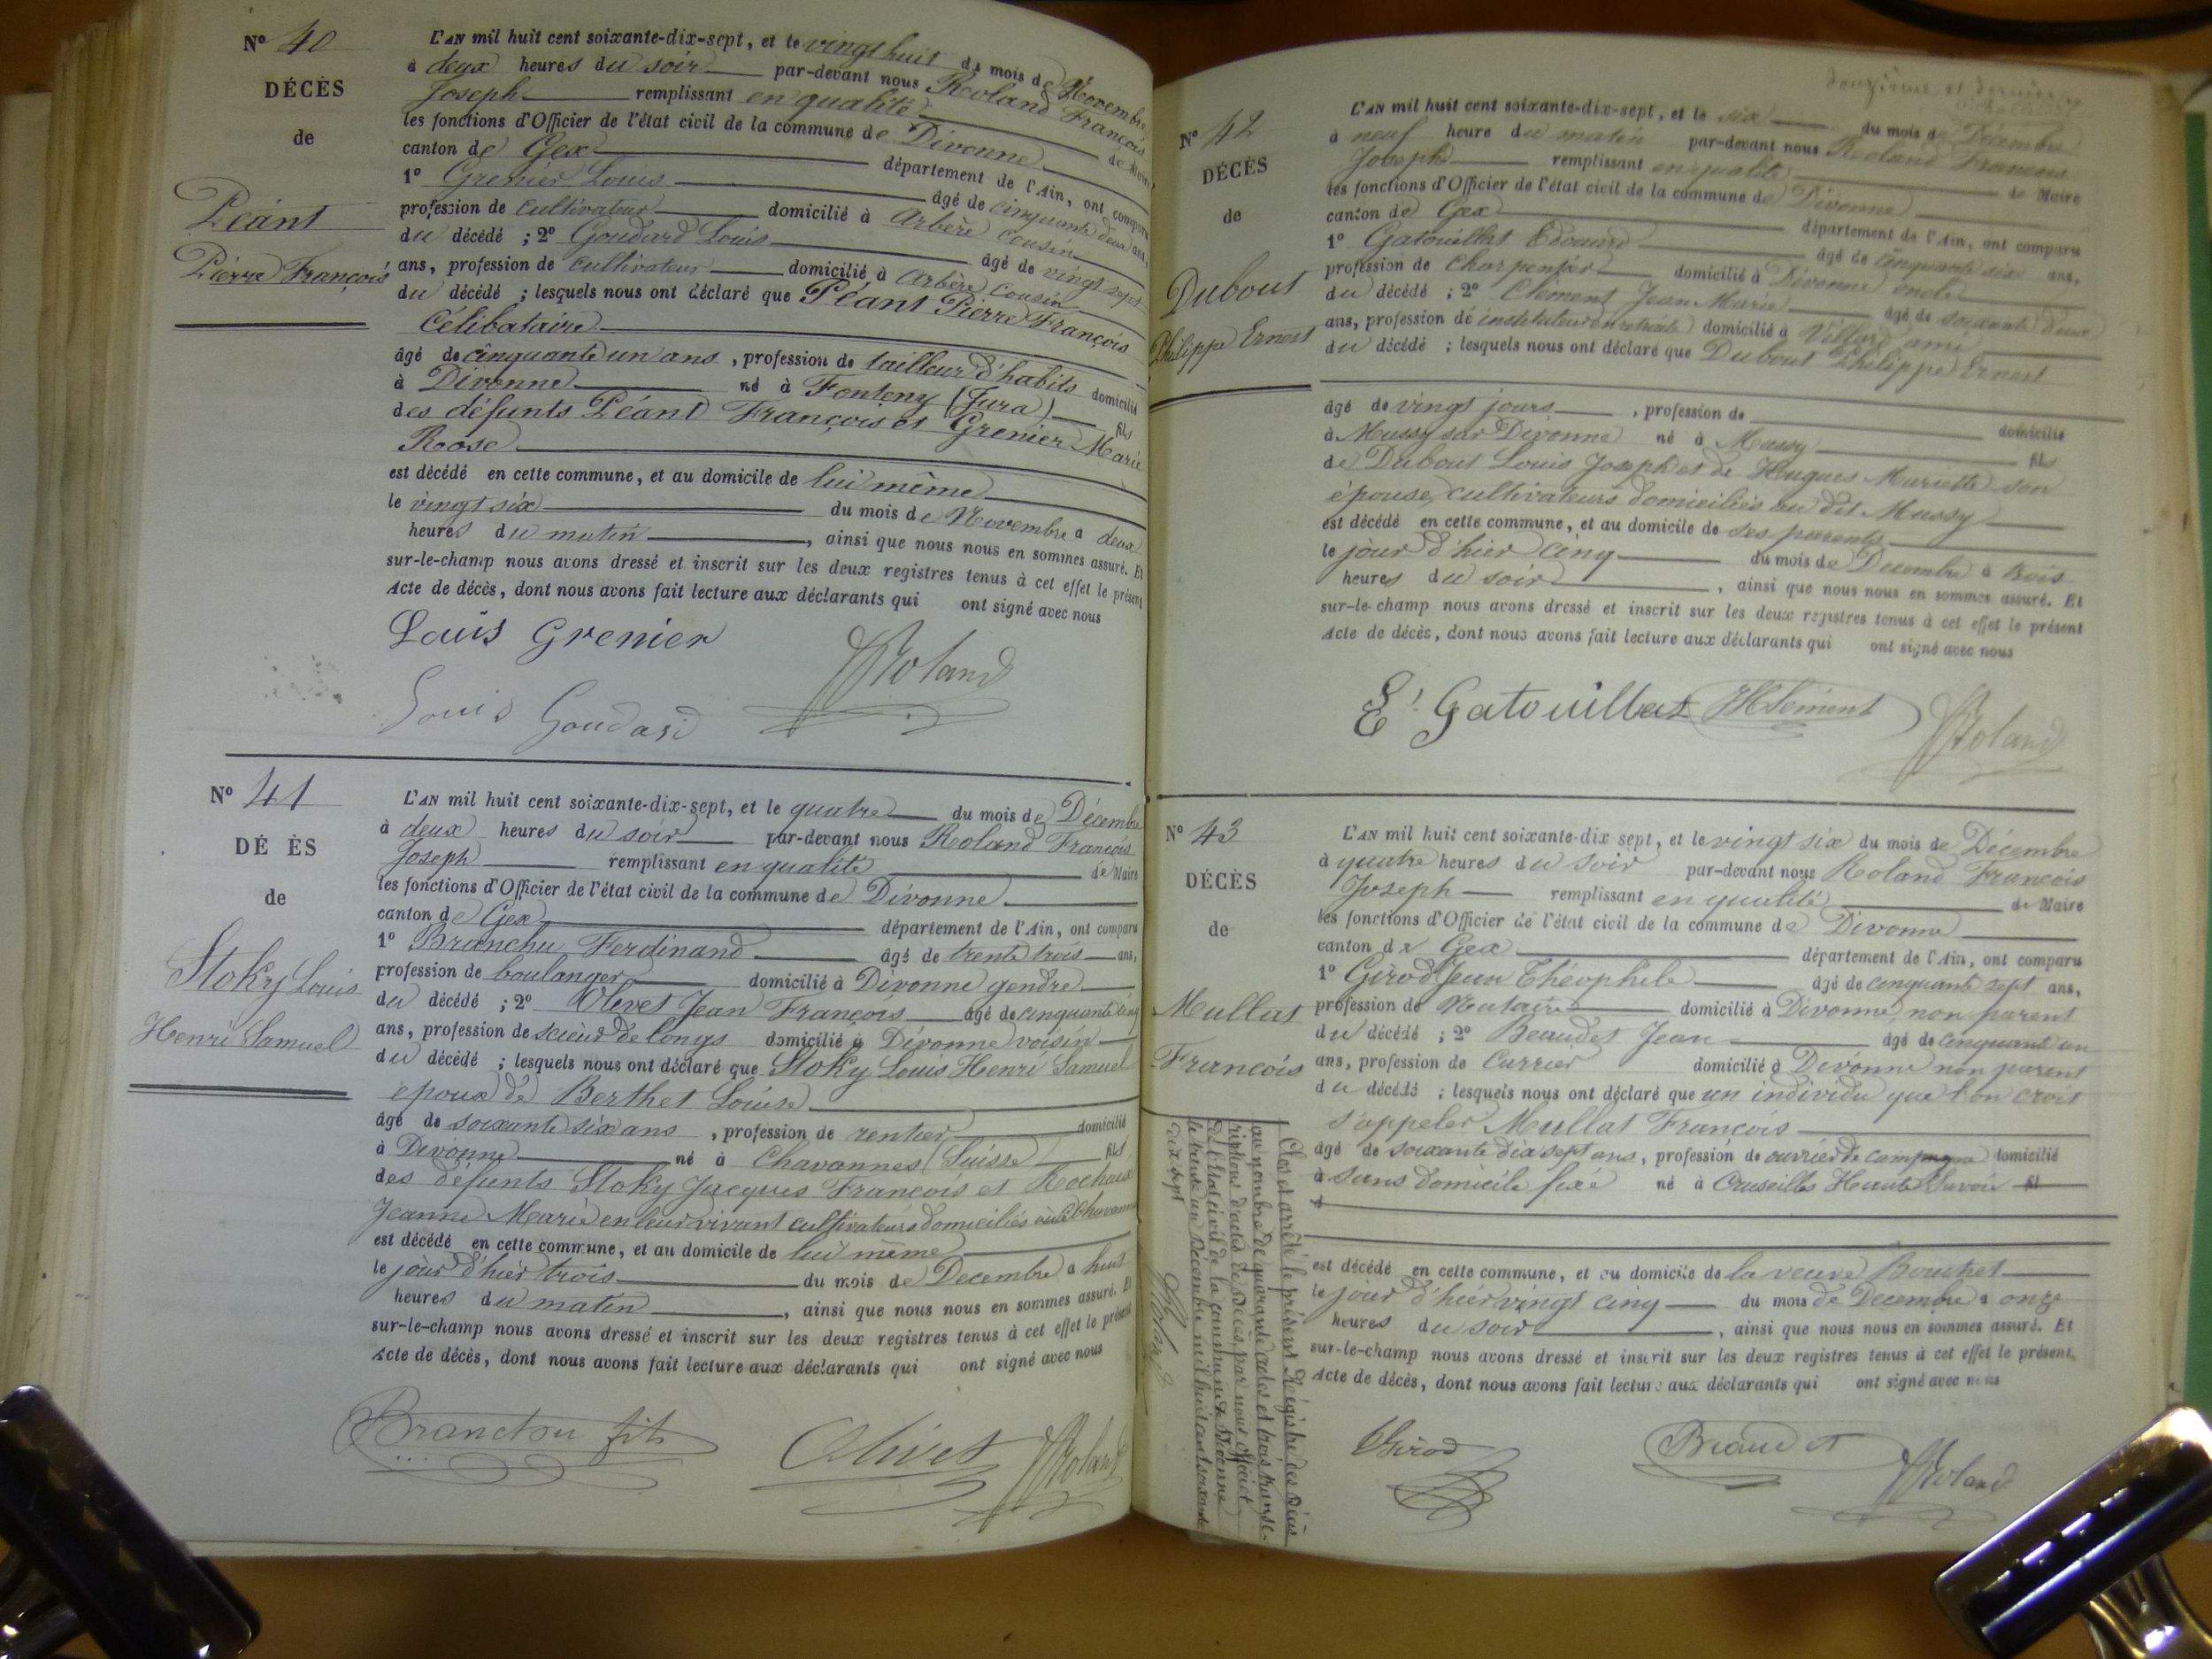 N° 40
DÉCÈS
de
Péant
Pierre François
L'AN mil huit cent soixante-dix-sept, et le vingt huit du mois de Novembre
à deux heures du soir par-devant nous Roland François
Joseph remplissant en qualité de Maire
les fonctions d'Officier de l'état civil de la commune de Divonne
canton de Gex département de l'Ain, ont comparu
1° Grenier Louis âgé de cinquante deux ans,
profession de cultivateur domicilié à Arbère cousin
du décédé ; 2° Goudard Louis âgé de vingt sept
ans, profession de cultivateur domicilié à Arbère cousin
du décédé ; lesquels nous ont déclaré que Péant Pierre François
Célibataire
âgé de cinquante un ans, profession de tailleur d'habits domicilié
à Divonne né à Fonteny (Jura) fils
des défunts Péant François et Grenier Marie
Roose
est décédé en cette commune, et au domicile de lui même
le vingt six du mois de Novembre à deux
heures du matin, ainsi que nous nous en sommes assuré. Et
sur-le-champ nous avons dressé et inscrit sur les deux registres tenus à cet effet le présent
Acte de décès, dont nous avons fait lecture aux déclarants qui ont signé avec nous
Louis Grenier
Roland
Louis Goudard
N° 41
DÉ ÈS
de
Stoky Louis
Henri Samuel
L'AN mil huit cent soixante-dix-sept, et le quatre du mois de Décembre
à deux heures du soir par-devant nous Roland François
Joseph remplissant en qualité de Maire
les fonctions d'Officier de l'état civil de la commune de Divonne
canton de Gex département de l'Ain, ont comparu
1° Branchu Ferdinand âgé de trente trois ans,
profession de boulanger domicilié à Divonne gendre
du décédé ; 2° Olivet Jean François âgé de cinquante cinq
ans, profession de scieur de longs domicilié à Divonne voisin
du décédé ; lesquels nous ont déclaré que Stoky Louis Henri Samuel
époux de Berthet Louise
âgé de soixante six ans, profession de rentier domicilié
à Divonne né à Chavannes (Suisse) fils
des défunts Stoky Jacques François et Rochaix
Jeanne Marie en leur vivant cultivateurs domiciliés Chavannes
est décédé en cette commune, et au domicile de lui même
le jour d'hier trois du mois de Decembre à huit
heures du matin, ainsi que nous nous en sommes assuré. Et
sur-le-champ nous avons dressé et inscrit sur les deux registres tenus à cet effet le présent
Acte de décès, dont nous avons fait lecture aux déclarants qui ont signé avec nous
Olivet
Roland
Douzième et dernier
N° 42
DÉCÈS
de
Dubout
Philippe Ernest
L'AN mil huit cent soixante-dix-sept, et le six du mois de Décembre
à neuf heure du matin par-devant nous Roland François
Joseph remplissant en qualité de Maire
les fonctions d'Officier de l'état civil de la commune de Divonne
canton de Gex département de l'Ain, ont comparu
1° Gatouillat Edouard âgé de cinquante six ans,
profession de Charpentier domicilié à Divonne oncle
du décédé ; 2° Clément Jean Marie âgé de soixante deux
ans, profession de instituteur en retraite domicilié à Villard ami
du décédé ; lesquels nous ont déclaré que Dubout Philippe Ernest
âgé de vingt jours, profession de domicilié
à Mussy sur Divonne né à Mussy fils
de Dubout Louis Joseph et de Hugues Mariette son
épouse, cultivateurs domiciliés au dit Mussy
est décédé en cette commune, et au domicile de ses parents
le jour d'hier cinq du mois de Decembre à trois
heures du soir, ainsi que nous nous en sommes assuré. Et
sur-le-champ nous avons dressé et inscrit sur les deux registres tenus à cet effet le présent
Acte de décès, dont nous avons fait lecture aux déclarants qui ont signé avec nous
Ed Gatouillat
Clément
Roland
N° 43
DÉCÈS
de
Mullat
François
L'AN mil huit cent soixante-dix sept, et le vingt six du mois de Décembre
à quatre heures du soir par-devant nous Roland François
Joseph remplissant en qualité de Maire
les fonctions d'Officier de l'état civil de la commune de Divonne
canton de Gex département de l'Ain, ont comparu
1° Girod Jean Théophile âgé de cinquante sept ans,
profession de Notaire domicilié à Divonne non parent
du décédé ; 2° Beaudet Jean âgé de cinquante un
ans, profession de Carrier domicilié à Divonne non parent
du décédé ; lesquels nous ont déclaré que un individu que l'on croit
s'appeler Mullat François
âgé de soixante dix sept ans, profession de ouvrier de campagne domicilié
à sans domicile fixe né à Cruseilles Haute Savoie fil
d
est décédé en cette commune, et au domicile de la veuve Bouchet
le jour d'hier vingt cinq du mois de Decembre à onze
heures du soir, ainsi que nous nous en sommes assuré. Et
sur-le-champ nous avons dressé et inscrit sur les deux registres tenus à cet effet le présent.
Acte de décès, dont nous avons fait lecture aux déclarants qui ont signé avec nous
Girod
Roland
Clos et arrêté le présent Régistre des Décès
au nombre de quarante actes et trois transc-
riptions d'actes de décès, par nous officier
de l'état civil de la commune de Divonne
le trente un Décembre mil huit cent soixante
dix sept
Roland